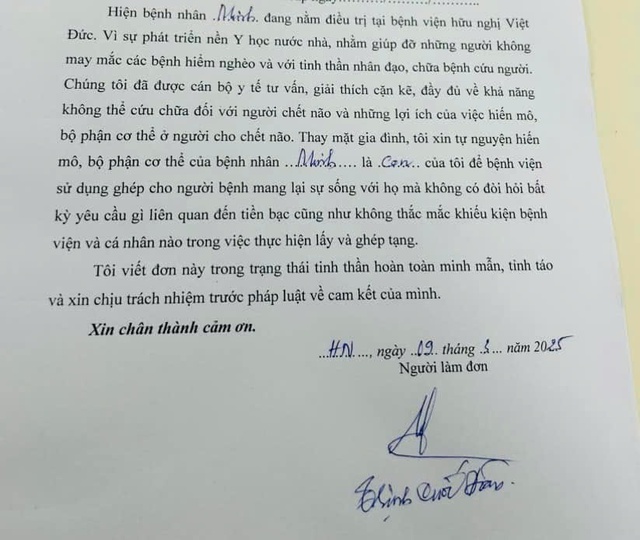 Hiện bệnh nhân .Minh. đang nằm điều trị tại bệnh viện hữu nghị Việt
Đức. Vì sự phát triển nền Y học nước nhà, nhằm giúp đỡ những người không
may mắc các bệnh hiểm nghèo và với tinh thần nhân đạo, chữa bệnh cứu người.
Chúng tôi đã được cán bộ y tế tư vấn, giải thích cặn kẽ, đầy đủ về khả năng
không thể cứu chữa đối với người chết não và những lợi ích của việc hiến mô,
bộ phận cơ thể ở người cho chết não. Thay mặt gia đình, tôi xin tự nguyện hiến
mô, bộ phận cơ thể của bệnh nhân ..Minh.... là .Con.. của tôi để bệnh viện
sử dụng ghép cho người bệnh mang lại sự sống với họ mà không có đòi hỏi bất
kỳ yêu cầu gì liên quan đến tiền bạc cũng như không thắc mắc khiếu kiện bệnh
viện và cá nhân nào trong việc thực hiện lấy và ghép tạng.
Tôi viết đơn này trong trạng thái tinh thần hoàn toàn minh mẫn, tỉnh táo
và xin chịu trách nhiệm trước pháp luật về cam kết của mình.
Xin chân thành cảm ơn.
...H.N...., ngày ..09.. tháng .3... năm 2025
Người làm đơn